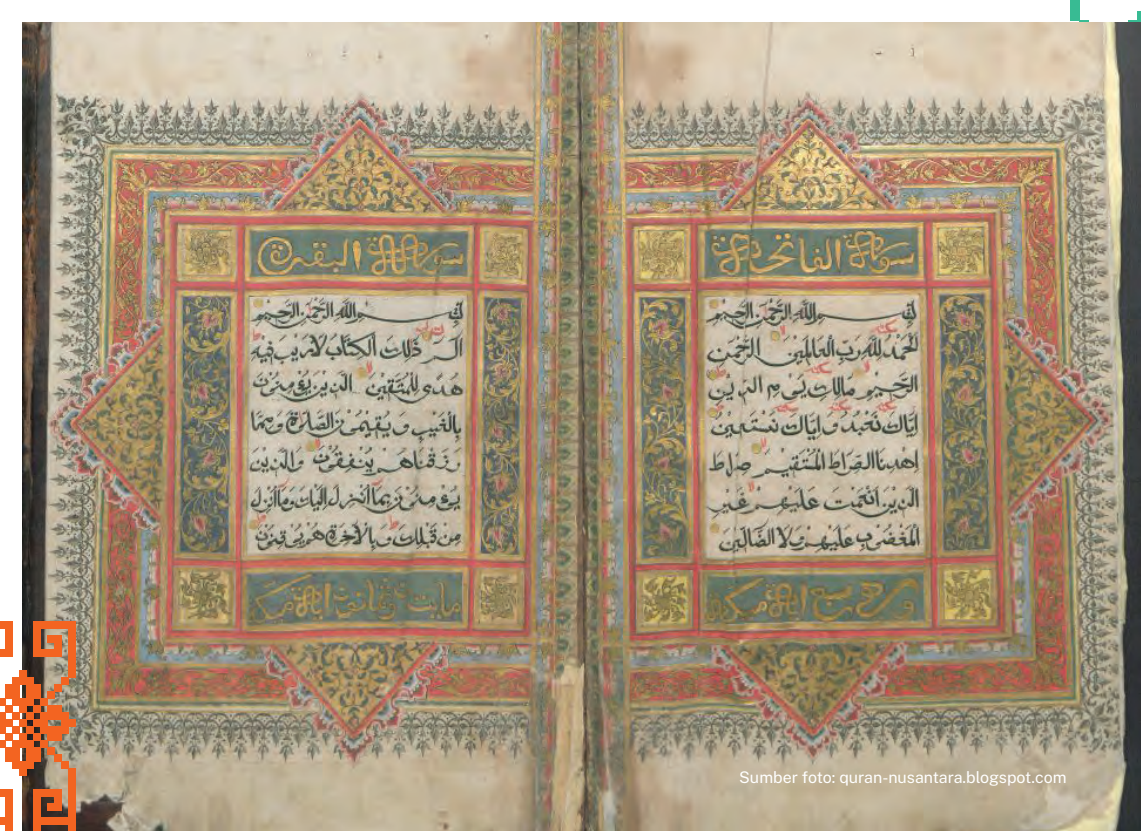 سورة الفاتحة
بِسْمِ اللَّهِ الرَّحْمٰنِ الرَّحِيمِ
اَلْحَمْدُ لِلَّهِ رَبِّ الْعَالَمِينَ الرَّحْمٰنِ
الرَّحِيمِ مَالِكِ يَوْمِ الدِّينِ
اِيَّاكَ نَعْبُدُ وَاِيَّاكَ نَسْتَعِينُ
اِهْدِنَا الصِّرَاطَ الْمُسْتَقِيمَ صِرَاطَ
الَّذِينَ اَنْعَمْتَ عَلَيْهِمْ غَيْرِ
الْمَغْضُوبِ عَلَيْهِمْ وَلَا الضَّالِّينَ
وهي سبع اية مكية
سورة البقرة
بِسْمِ اللَّهِ الرَّحْمٰنِ الرَّحِيمِ
الٓمٓ ذٰلِكَ الْكِتَابُ لَا رَيْبَ فِيهِ
هُدًى لِلْمُتَّقِينَ الَّذِينَ يُؤْمِنُونَ
بِالْغَيْبِ وَيُقِيمُونَ الصَّلٰوةَ وَمِمَّا
رَزَقْنَاهُمْ يُنْفِقُونَ وَالَّذِينَ
يُؤْمِنُونَ بِمَا اُنْزِلَ اِلَيْكَ وَمَا اُنْزِلَ
مِنْ قَبْلِكَ وَبِالْاٰخِرَةِ هُمْ يُوقِنُونَ
اية
Sumber foto: quran-nusantara.blogspot.com